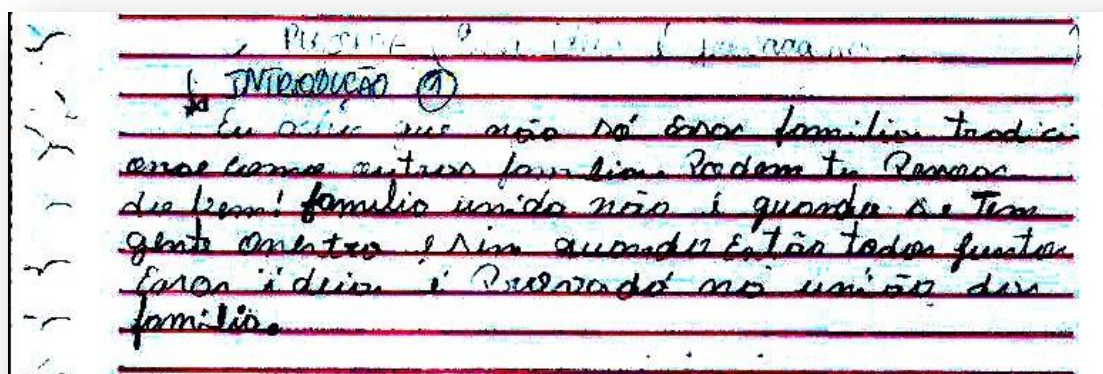 INTRODUÇÃO 1
Eu acho que não só esas familia tradici
onae como outras familia Podem te Pesoas
die bem! familio unida não é quando se Tem
gente onestro e sim quando Estão todos juntos
Esas ideias é Provado no união das
familia.